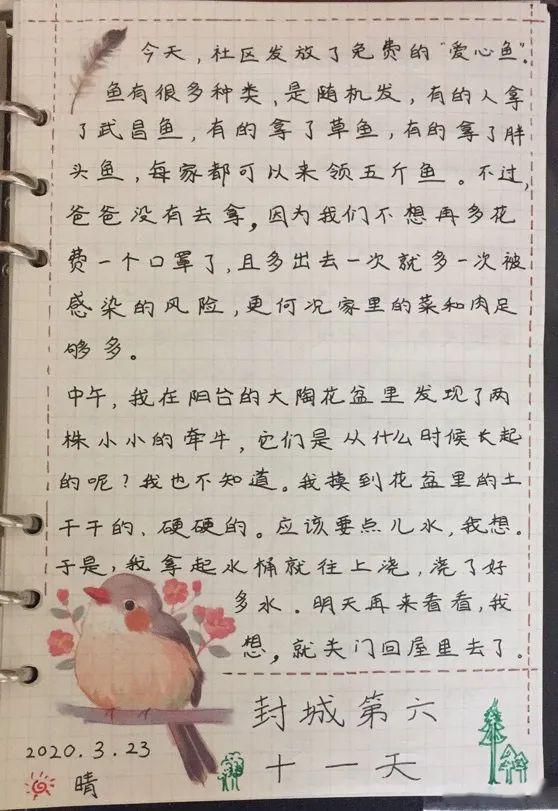 今天，社区发放了免费的“爱心鱼”。
鱼有很多种类，是随机发，有的人拿
了武昌鱼，有的拿了草鱼，有的拿了胖
头鱼，每家都可以来领五斤鱼。不过，
爸爸没有去拿，因为我们不想再多花
费一个口罩了，且多出去一次就多一次被
感染的风险，更何况家里的菜和肉足
够多。
中午，我在阳台的大陶花盆里发现了两
株小小的牵牛，它们是从什么时候长起
的呢？我也不知道。我摸到花盆里的土
干干的、硬硬的。应该要点儿水，我想。
于是，我拿起水桶就往上浇，浇了好
多水。明天再来看看，我
想，就关门回屋里去了。
封城第六
十一天
2020.3.23
晴